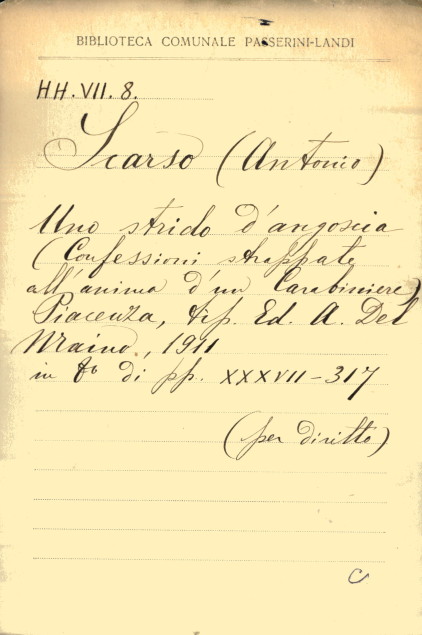 BIBLIOTECA COMUNALE PASSERINI-LANDI
HH.VII.8.
Scarso (Antonio)
Uno strido d'angoscia
(Confessioni strappate
all'anima d'un Carabiniere)
Piacenza, tip. Ed. A. Del
Maino, 1911
in 8º di pp. XXXVII-317
(per diritto)
C